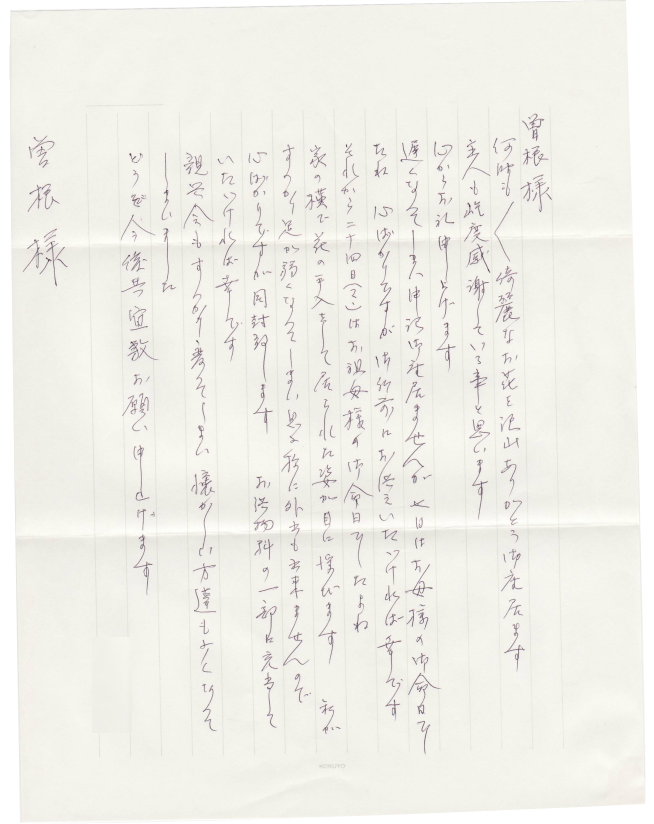 曽根様
何時も〱綺麗なお花を沢山ありがとう御座居ます
主人も屹度感謝している事と思います
心からお礼申し上げます
遅くなってしまい申訳御座居ませんが 七日はお母様の御命日でし
たね 心ばかりですが御佛前にお供えいただければ幸です
それから二十四日はお祖母様の御命日でしたよね
家の横で花の手入をして居られた姿が目に浮びます 私が
すっかり足が弱くなってしまい思う様に外出も出来ませんので
心ばかりですが同封致します お供物料の一部に充当して
いただければ幸です
親 今もすっかり変ってしまい懐かしい方達も亡くなって
しまいました
どうぞ今後共宜敷お願い申し上げます
曽根様
KOKUYO